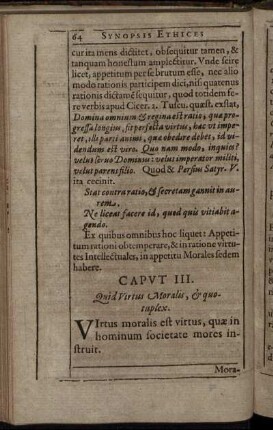 64 SYNOPSIS ETHICES
cur ita mens dictitet, obsequitur tamen, &
tanquam honestum amplectitur. Unde scire
licet, appetitum per se brutum esse, nec alio
modo rationis participem dici, nisi quatenus
rationis dictamē sequitur, quod totidem fe-
re verbis apud Cicer. 2. Tuscu. quæst. exstat,
Domina omnium & regina est ratio, quæ pro-
gressa longius, fit perfecta virtus, hæc ut impe-
ret, illi parti animi, quæ obedire debet, id vi-
dendum est viro. Quo nam modo, inquies?
velut servo Dominus: velut imperator militi,
velut parens filio. Quod & Persius Satyr. V.
ita cecinit.
Stat contra ratio, & secretam gannit in au-
rem,
Ne liceat facere id, quod quis vitiabit a-
gendo.
Ex quibus omnibus hoc liquet: Appeti-
tum rationi obtemperare, & in ratione virtu-
tes Intellectuales, in appetitu Morales sedem
habere.
CAPVT III.
Quid Virtus Moralis, & quo-
tuplex.
VIrtus moralis est virtus, quæ in
hominum societate mores in-
struit.
Mora-